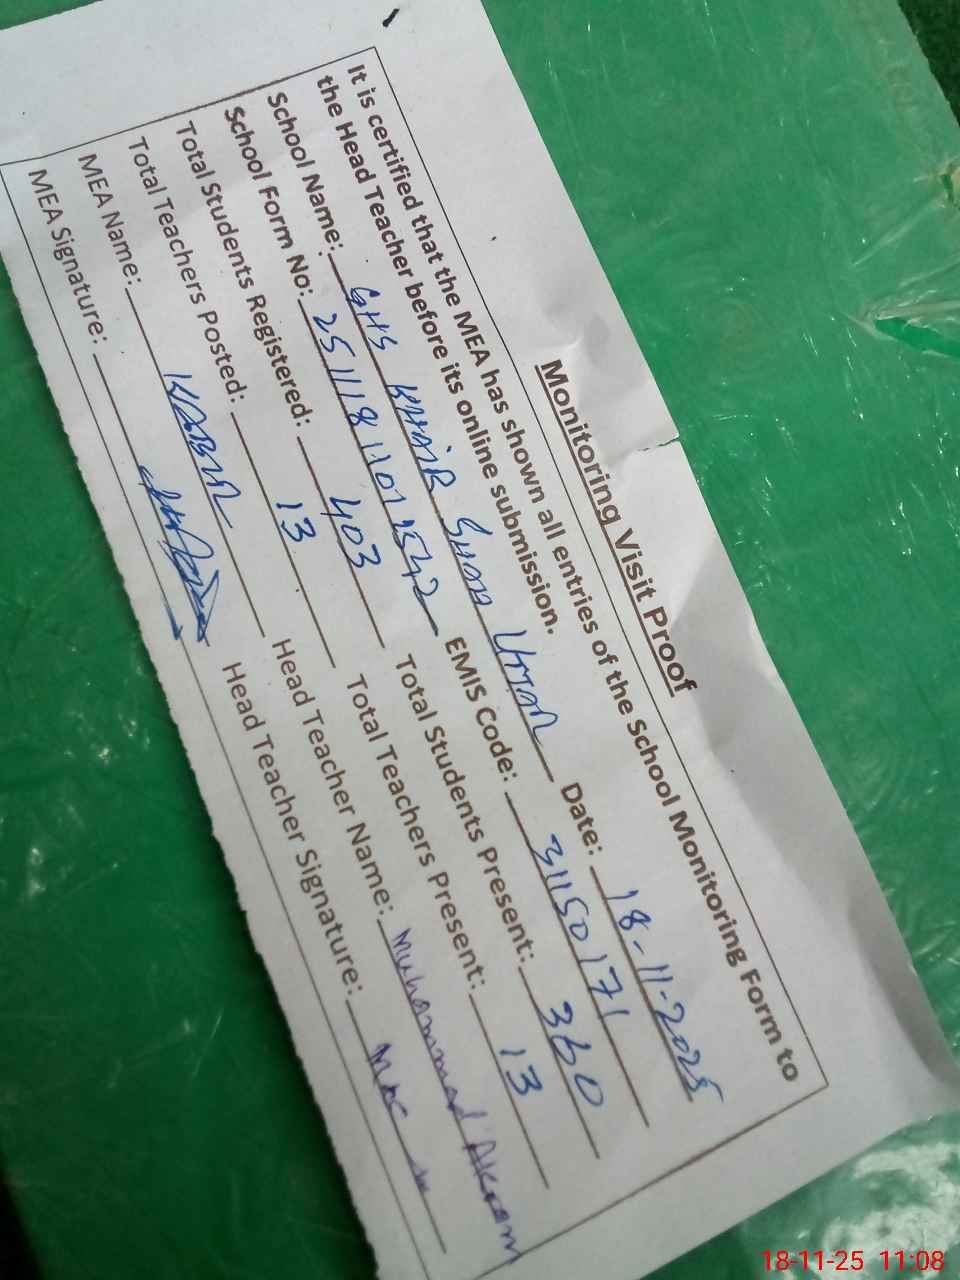 Monitoring Visit Proof
It is certified that the MEA has shown all entries of the School Monitoring Form to
the Head Teacher before its online submission.
School Name: GHS KHAIR SHAH UTTAR Date: 18-11-2025
School Form No: EMIS Code: 31150171
Total Students Registered: 403 Total Students Present: 360
Total Teachers Posted: 13 Total Teachers Present: 13
MEA Name: Head Teacher Name: Muhammad Akram
MEA Signature: Head Teacher Signature:
18-11-25 11:08